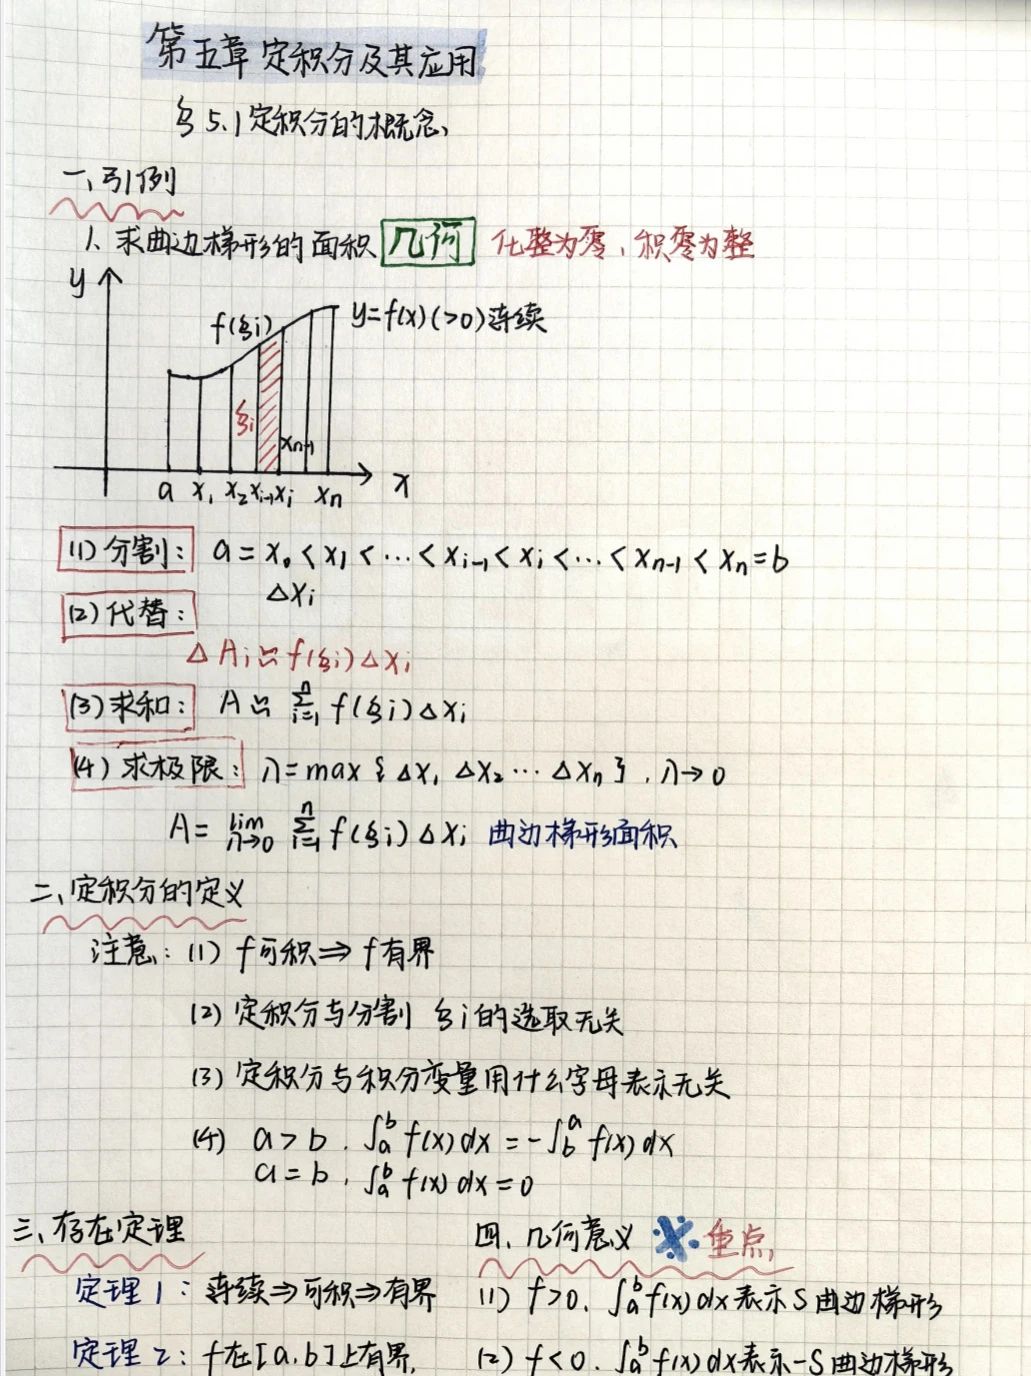 第五章 定积分及其应用
§5.1 定积分的概念
一、引例
1、求曲边梯形的面积 几何 化整为零，积零为整
y
f(ξi) y=f(x)(>0)连续
ξi
xn-1
a x1 x2 xi-1 xi xn x
(1) 分割： a = x0 < x1 < … < xi-1 < xi < … < xn-1 < xn = b
Δxi
(2) 代替：
ΔAi ≈ f(ξi)Δxi
(3) 求和： A ≈ Σ_{i=1}^{n} f(ξi)Δxi
(4) 求极限： λ = max { Δx1 Δx2 … Δxn }，λ→0
A = lim_{λ→0} Σ_{i=1}^{n} f(ξi)Δxi 曲边梯形面积
二、定积分的定义
注意：(1) f可积⇒f有界
(2) 定积分与分割 ξi的选取无关
(3) 定积分与积分变量用什么字母表示无关
(4) a > b . ∫_a^b f(x)dx = -∫_b^a f(x)dx
a = b , ∫_a^b f(x)dx = 0
三、存在定理
定理1：连续⇒可积⇒有界
定理2：f在[a,b]上有界,
四、几何意义 重点,
(1) f>0. ∫_a^b f(x)dx表示S曲边梯形
(2) f<0. ∫_a^b f(x)dx表示-S曲边梯形